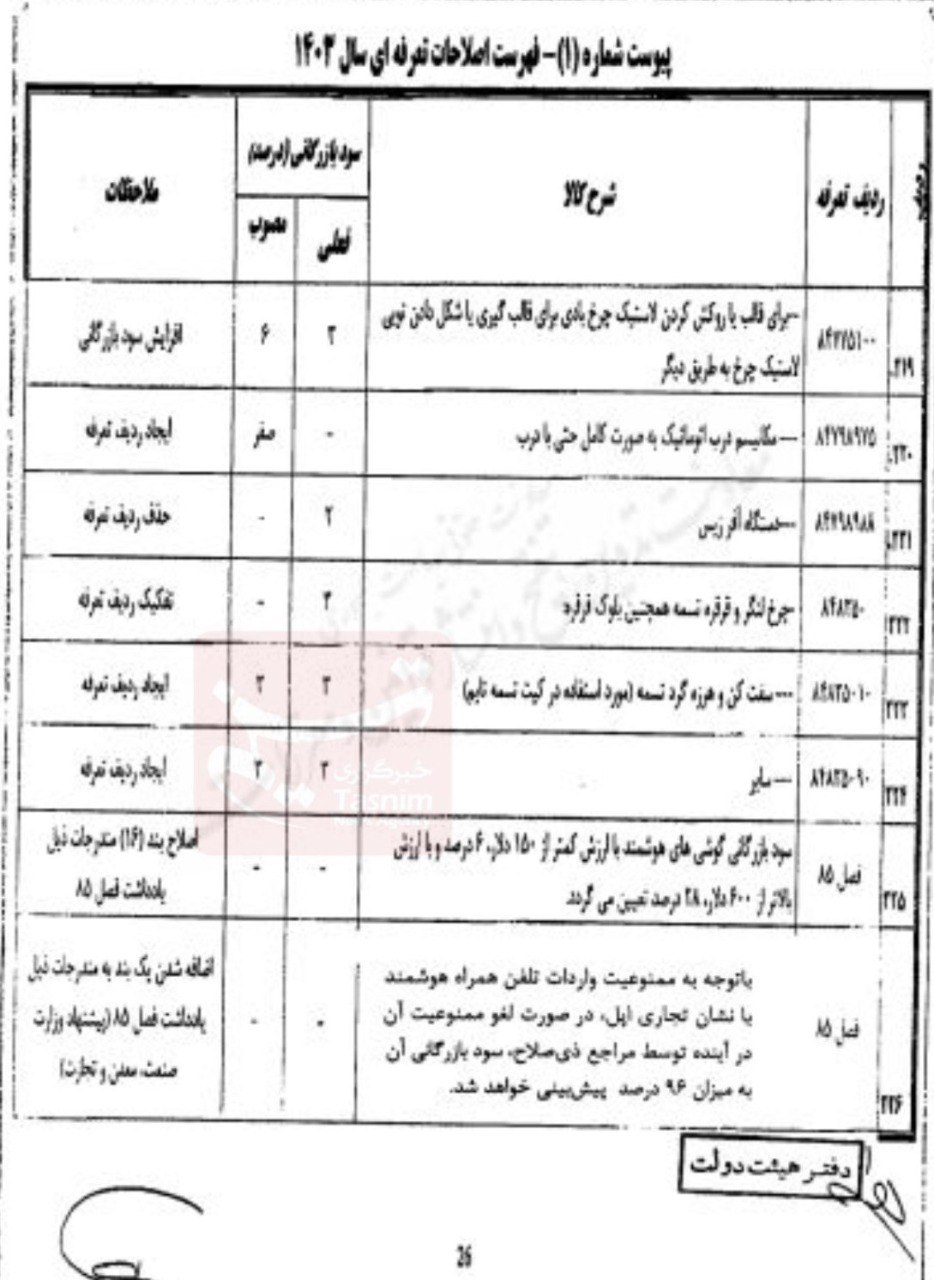 پیوست شماره (۱)- فهرست اصلاحات تعرفه ای سال ۱۴۰۳
ردیف
ردیف تعرفه
شرح کالا
سود بازرگانی (درصد)
فعلی
مصوب
ملاحظات
۲۱۹.
۸۴۷۷۵۱۰۰
--برای قالب یا روکش کردن لاستیک چرخ بادی برای قالب گیری یا شکل دادن تویی
لاستیک چرخ به طریق دیگر
۲
۶
افزایش سود بازرگانی
۲۲۰.
۸۴۷۹۸۹۷۵
--- مکانیسم درب اتوماتیک به صورت کامل حتی با درب
-
صفر
ایجاد ردیف تعرفه
۲۲۱.
۸۴۷۹۸۹۸۸
---دستگاه آفر زیس
۲
-
حذف ردیف تعرفه
۲۲۲
۸۴۸۳۵۰
-چرخ لنگر و قرقره تسمه همچنین بلوک قرقره:
۳
-
تفکیک ردیف تعرفه
۲۲۳
۸۴۸۳۵۰۱۰
--- سفت کن و هرزه گرد تسمه (مورد استفاده در کیت تسمه تایم)
۳
۳
ایجاد ردیف تعرفه
۲۲۴
۸۴۸۳۵۰۹۰
--- سایر
۳
۳
ایجاد ردیف تعرفه
۲۲۵
فصل ۸۵
سود بازرگانی گوشی های هوشمند با ارزش کمتر از ۱۵۰ دلار، ۶ درصد و با ارزش
بالاتر از ۶۰۰ دلار، ۲۸ درصد تعیین می گردد.
-
-
اصلاح بند (۱۶) مندرجات ذیل
یادداشت فصل ۸۵
۲۲۶
فصل ۸۵
باتوجه به ممنوعیت واردات تلفن همراه هوشمند
با نشان تجاری اپل، در صورت لغو ممنوعیت آن
در آینده توسط مراجع ذی‌صلاح، سود بازرگانی آن
به میزان ۹۶ درصد پیش‌بینی خواهد شد.
-
-
اضافه شدن یک بند به مندرجات ذیل
یادداشت فصل ۸۵ (پیشنهاد وزارت
صنعت، معدن و تجارت)
خبرگزاری
Tasnim
دفتر هیئت دولت
26